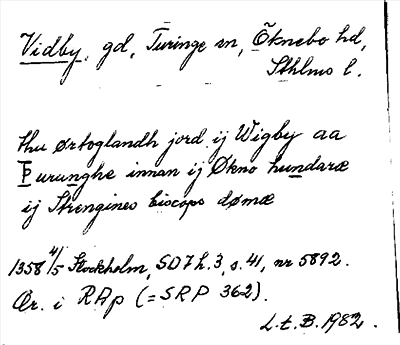 Vidby, gd, Turinge sn, Öknebo hd,
Sthlms l.
thu ørtoglandh jord ij Wigby aa
Þurunghe innan ij Økno hundaræ
ij Strengines biscops dømæ
1358 4/5 Stockholm, SD 7 h. 3, s. 41, nr 5892.
Or. i RAp (= SRP 362).
L.t. B. 1982.